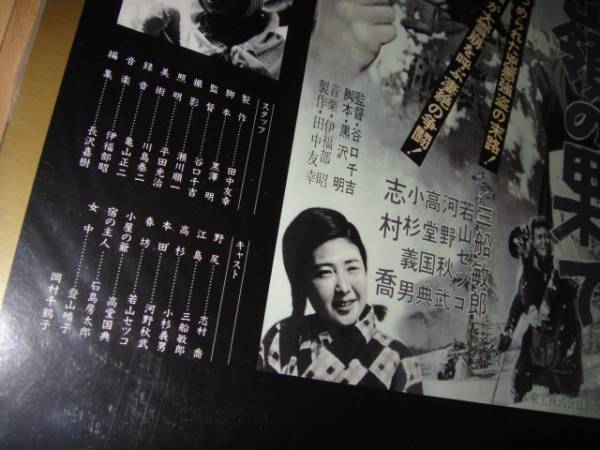 銀嶺の果て
つめられた兇悪強盗の末路!
が大雪崩を呼ぶ凄絶の争闘!
監督・谷口千吉
脚本・黒沢 明
音楽・伊福部 昭
製作・田中友幸
三船敏郎
若山セツコ
河野秋武
高堂国典
小杉義男
志村 喬
スタッフ
製作………田中友幸
脚本………黒澤 明
監督………谷口千吉
撮影………瀬川順一
照明………平田光治
美術………川島泰二
録音………亀山正二
音楽………伊福部昭
編集………長沢嘉樹
キャスト
野尻………志村 喬
江島………三船敏郎
高杉………小杉義男
本田………河野秋武
春坊………若山セツコ
小屋の爺………高堂国典
宿の主人………石島房太郎
女中………登山晴子
岡村千鶴子
東宝株式会社